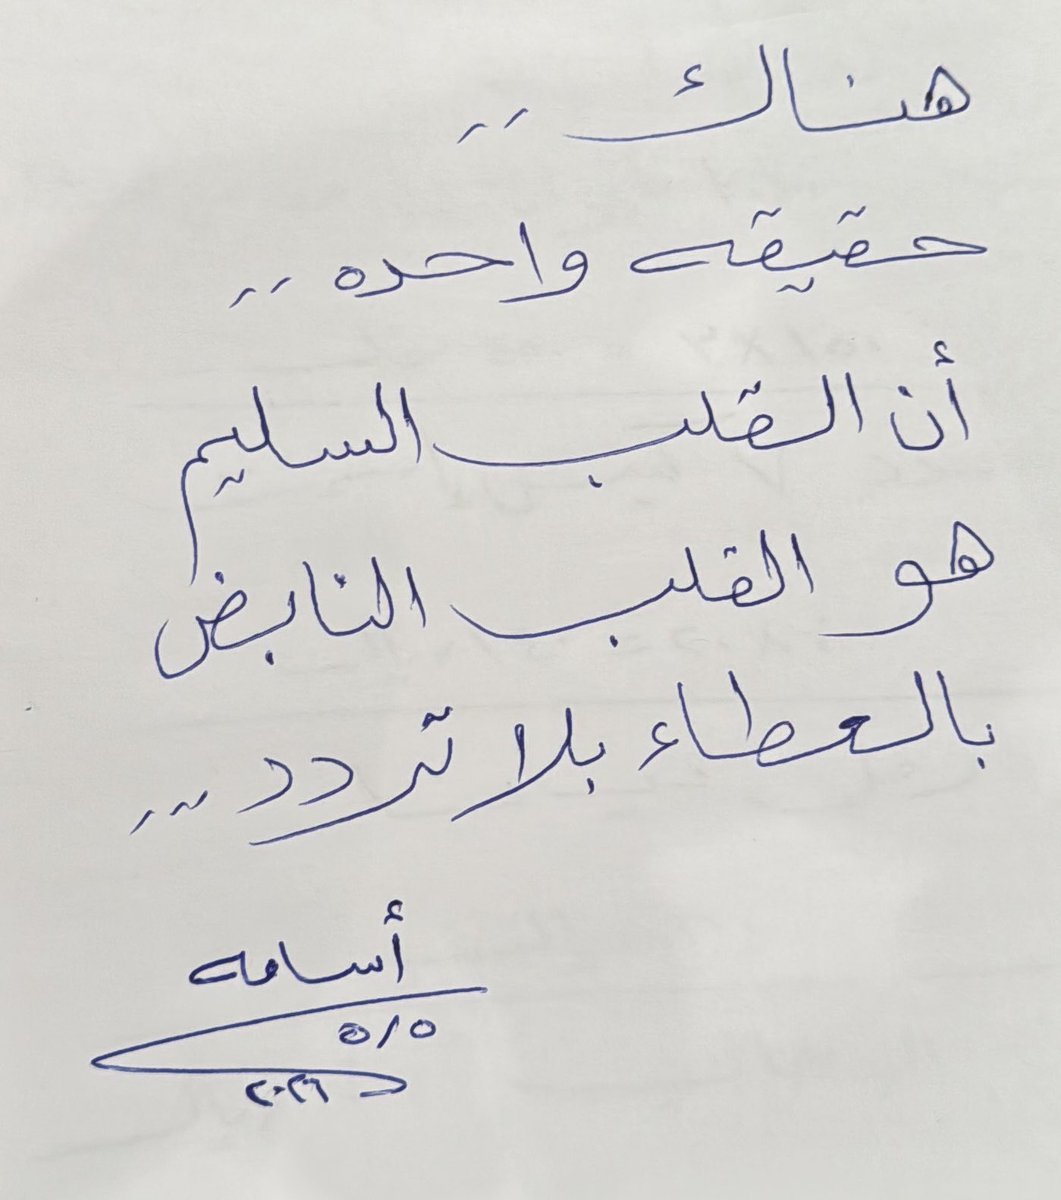 هناك ..
حقيقه واحده ..
أن القلب السليم
هو القلب النابض
بالعطاء بلا تردد ...
أسامه
٥/٥
٢٠٢٦